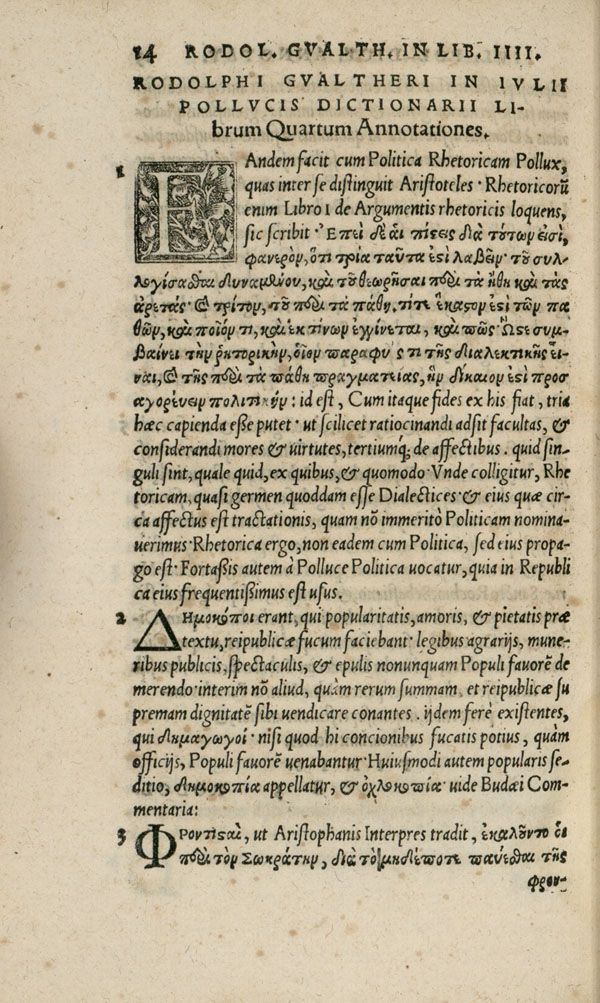 14 RODOL. GVALTH. IN LIB. IIII.
RODOLPHI GVALTHERI IN IVLII
POLLVCIS DICTIONARII LI-
brum Quartum Annotationes.
1 EAndem facit cum Politica Rhetoricam Pollux,
quas inter se distinguit Aristoteles · Rhetoricorū
enim Libro 1 de Argumentis rhetoricis loquens,
sic scribit · Ἐπεὶ δὲ αἱ πίςεις διὰ τȣ́τωμ εἰσὶ,
φανερὸμ, ὅτι τρία ταῦτα ἐςὶ λαβεῖμ · τȣ͂ συλ-
λογίσαϑαι δυναμθύου, καὶ τοῦ θεωρῆσαι περὶ τὰ ἤθη καὶ τὰς
ἀρετάς · & τρίτομ, τοῦ περὶ τὰ πάθη, τίτε ἕκαςομ ἐςὶ τῶμ πα
θῶμ, καὶ ποῖόμ τι, καὶ ἐκ τίνωμ ἐγγίνεται, καὶ πῶς · Ὥςε συμ-
βαίνει τὴμ ῥητορικὴμ, οἷομ παραφυές τι τῆς διαλεκτικῆς εἶ-
ναι, & τῆς περὶ τὰ πάθη πραγματείας, ἣμ δίκαιομ ἐςὶ προσ
αγορεύειμ πολιτικήμ : id est, Cum itaque fides ex his fiat, tria
hæc capienda esse putet · ut scilicet ratiocinandi adsit facultas, &
considerandi mores & uirtutes, tertiumq́; de affectibus . quid sin-
guli sint, quale quid, ex quibus, & quomodo · Vnde colligitur, Rhe
toricam, quasi germen quoddam esse Dialectices · & eius quæ cir-
ca affectus est tractationis, quam nō immeritò Politicam nomina-
uerimus · Rhetorica ergo, non eadem cum Politica, sed eius propa-
go est · Fortaßis autem à Polluce Politica uocatur, quia in Republi
ca eius frequentißimus est usus.
2 ΔΗμοκόποι erant, qui popularitatis, amoris, & pietatis præ
textu, reipublicæ fucum faciebant · legibus agrarijs, mune-
ribus publicis, spectaculis, & epulis nonunquam Populi fauorē de
merendo · interim nō aliud, quàm rerum summam, et reipublicæ su
premam dignitatē sibi uendicare conantes . ijdem ferè existentes,
qui δημαγωγοί · nisi quod hi concionibus fucatis potius, quàm
officijs, Populi fauorē uenabantur · Huiusmodi autem popularis se-
ditio, δημοκοπία appellatur, & ὀχλοκοπία · uide Budæi Com-
mentaria:
3 ΦΡοντιςαὶ, ut Aristophanis Interpres tradit, ἐκαλοῦντο οἱ
περὶ τὸμ Σωκράτημ, διὰ τὸ μηδέποτε παύεϑαι τῆς
φρον-